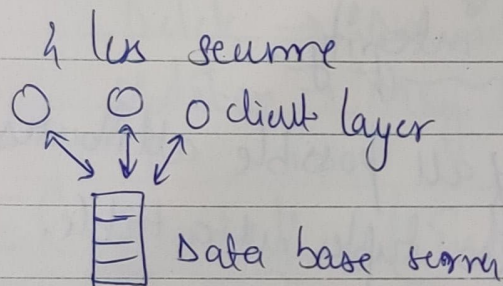 & less secure
client layer
Data base server